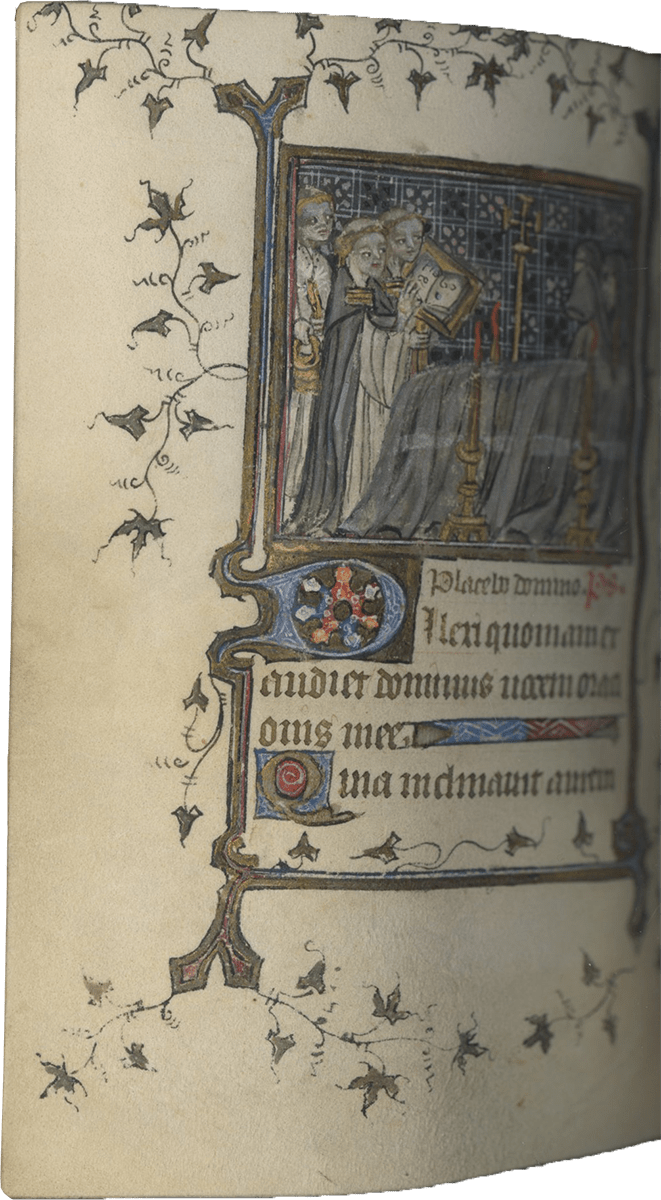 Placebo domino. ps.
Dilexi quoniam ex
audiet dominus uocem oraci
onis mee
Quia inclinauit aurem